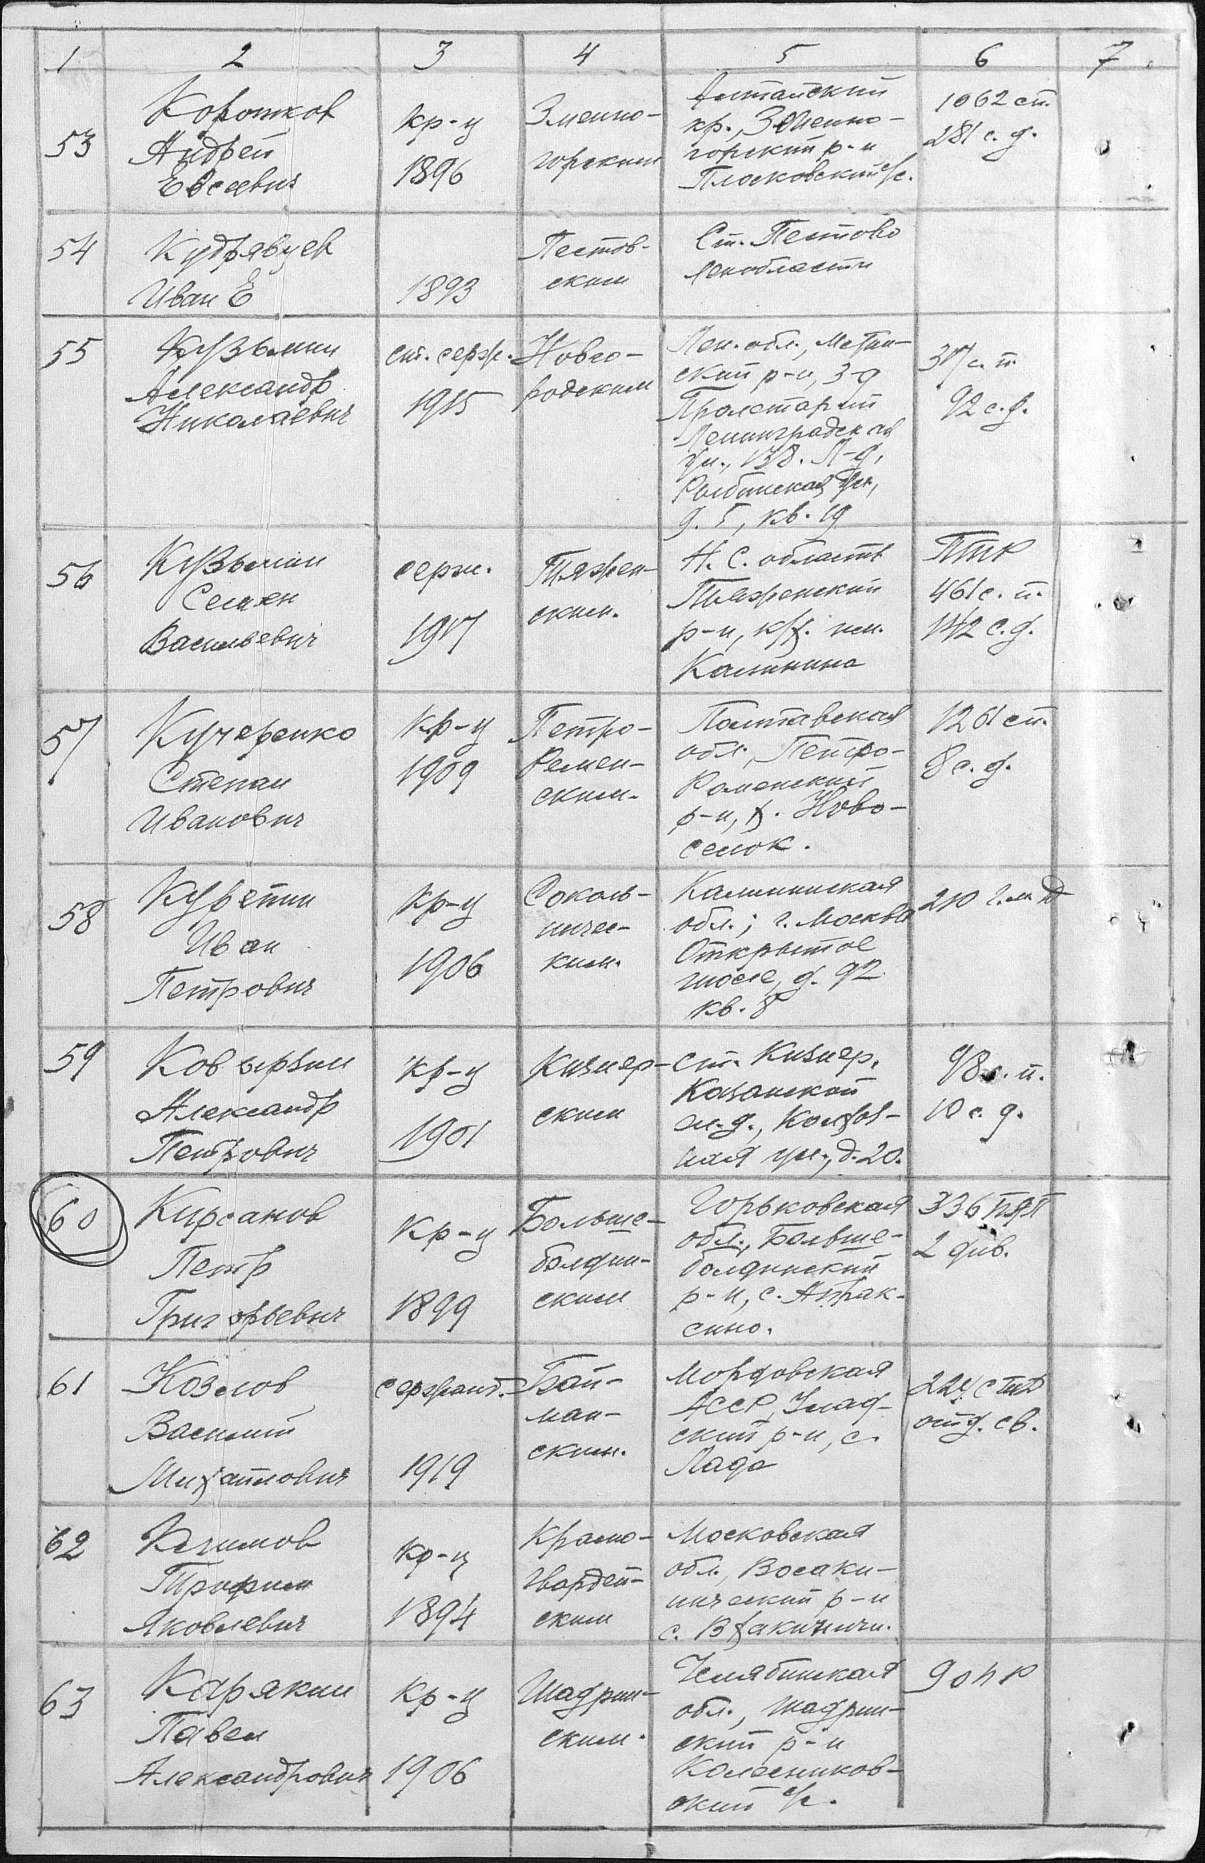 1 2 3 4 5 6 7
53
Коротков
Андрей
Евсеевич
кр-ц
1896
Змеино-
горским
Алтайский
кр., Змеино-
горский р-н
Плосковский с/с.
1062 сп.
281 с. д.
54
Кудрявцев
Иван Е
1893
Пестов-
ским
Ст. Пестово
Ленобласти
55
Кузьмин
Александр
Николаевич
ст. серж.
1915
Новго-
родским
Лен. обл., Мстин-
ский р-н, з-д
Пролетарий
Ленинградская
ул., 138. Л-д,
ул,
д. 5, кв. 19
317 с. п.
92 с. д.
56
Кузьмин
Семен
Васильевич
серж.
1917
Тяжен-
ским.
Н. С. область
Тяженский
р-н, к/х. им.
Калинина
ПТР
461 с. п.
142 с. д.
57
Кучеренко
Степан
Иванович
кр-ц
1909
Петро-
Ремен-
ским.
Полтавская
обл., Петро-
Роменский
р-н, х. Ново-
селок.
1261 сп.
8 с. д.
58
Куветин
Иван
Петрович
кр-ц
1906
Соколь-
ничес-
ким.
Калининская
обл.; г. Москва
Открытое
шоссе, д. 92
кв. 8
210
59
Ковырзин
Александр
Петрович
кр-ц
1901
Кизнер-
ским
ст. Кизнер,
Казанской
ж. д., Колхоз-
ная ул., д. 20.
98 с. п.
10 с. д.
60
Кирсанов
Петр
Григорьевич
кр-ц
1899
Больше-
болдин-
ским
Горьковская
обл., Больше-
болдинский
р-н, с. Апрак-
сино.
336 ПАП
2 див.
61
Козлов
Василий
Михайлович
сержант.
1919
Бай-
ман-
ским.
Мордовская
АССР,
ский р-н, с.
Лада
отд. св.
62
Климов
Трофим
Яковлевич
кр-ц
1894
Красно-
гвардей-
ским
Московская
обл.,
нический р-н
63
Карякин
Павел
Александрович
кр-ц
1906
Шадрин-
ским.
Челябинская
обл., Шадрин-
ский р-н
Колесников-
ский с/с.